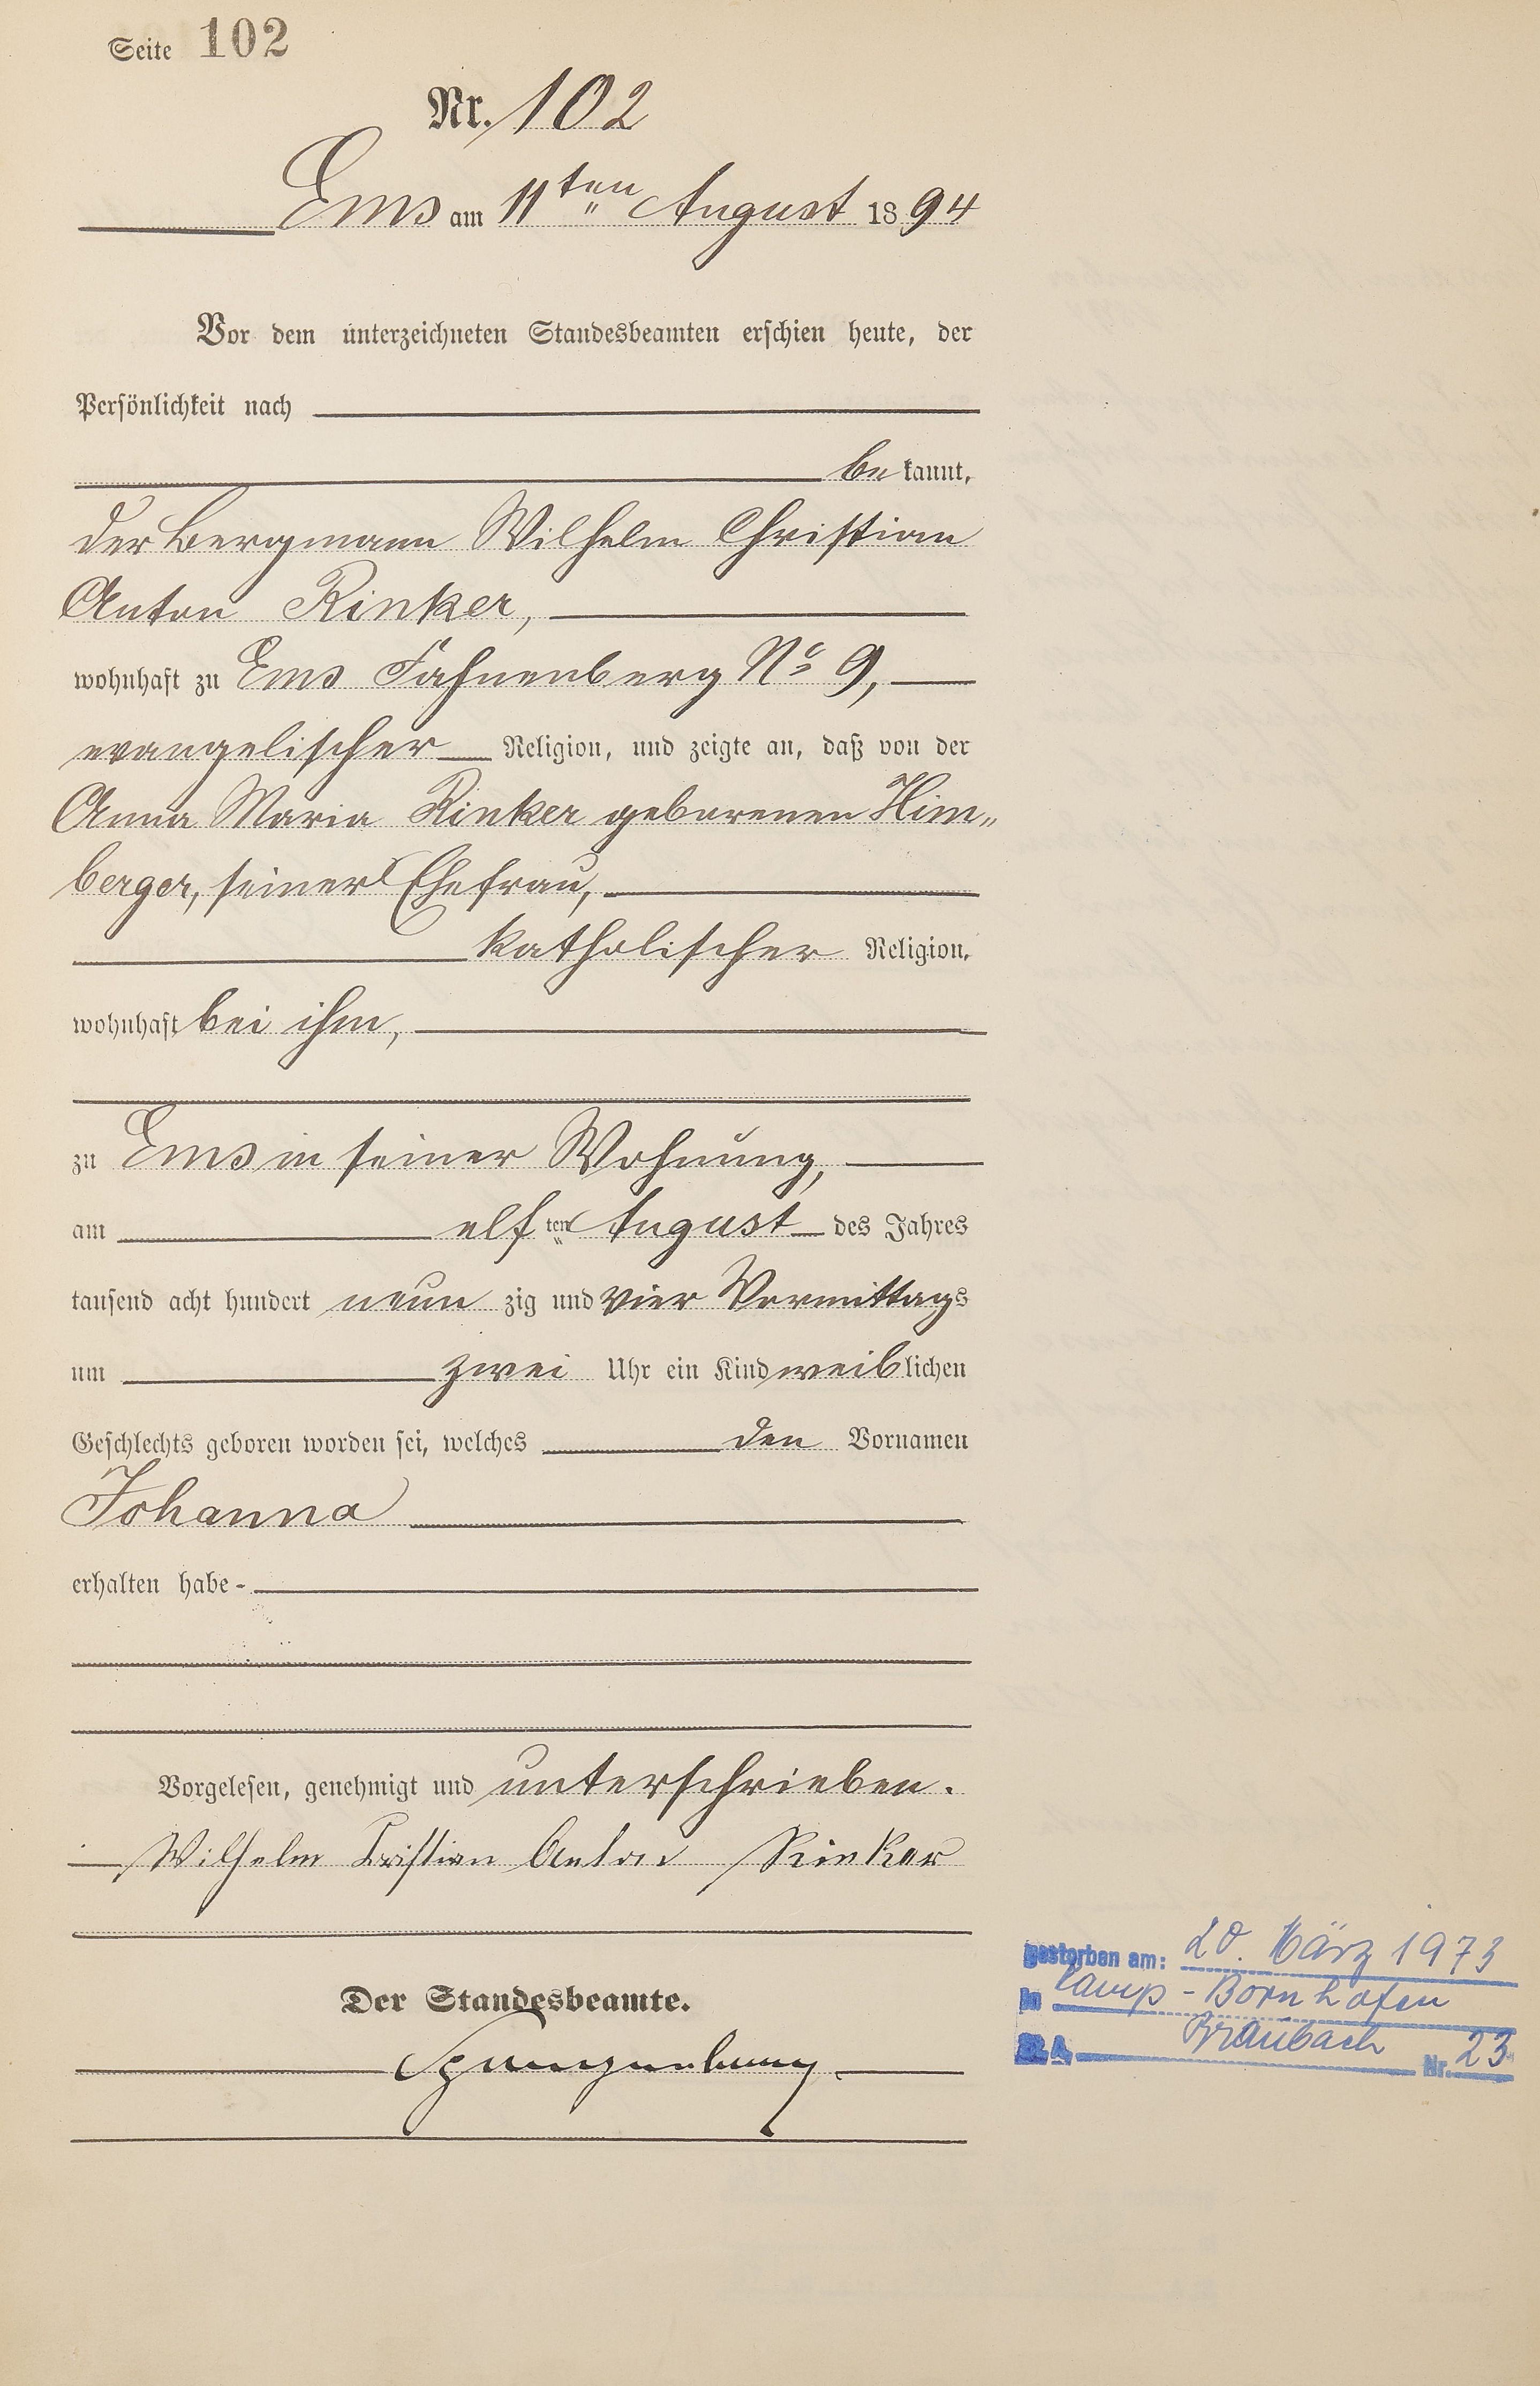 Seite 102
Nr. 102
Ems am 11ten August 1894
Vor dem unterzeichneten Standesbeamten erschien heute, der
Persönlichkeit nach
bekannt,
der Bergmann Wilhelm Christian
Anton Rinker,
wohnhaft zu Ems Fahnenberg No 9,
evangelischer Religion, und zeigte an, daß von der
Anna Maria Rinker geborenen Him„
berger, seiner Ehefrau,
katholischer Religion,
wohnhaft bei ihm,
zu Ems in seiner Wohnung,
am elften August des Jahres
tausend acht hundert neun zig und vier Vormittags
um zwei Uhr ein Kind weiblichen
Geschlechts geboren worden sei, welches den Vornamen
Johanna
erhalten habe -
Vorgelesen, genehmigt und unterschrieben.
Wilhelm Cristian Anton Rinker
Der Standesbeamte.
gestorben am: 20. März 1973
in Camp-Bornhofen
Braubach Nr. 23